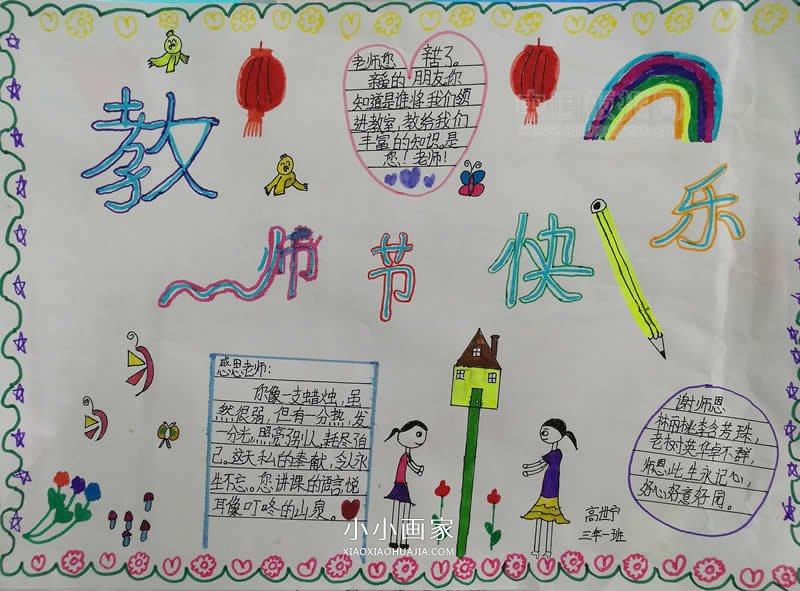 教师节快乐
老师您 辛苦了。
亲爱的 朋友,你
知道是谁将我们领
进教室,教给我们
丰富的知识。是
您!老师!
感恩老师:
你像一支蜡烛,虽
然很弱,但有一分热,发
一分光,照亮了别人,耗尽自
己。这无私的奉献,令人永
生不忘。您讲课的语言,悦
耳像叮咚的山泉。
谢师恩
桃李
老树英华
师恩此生永记心,
好心好意好园。
三年一班
小小画家
XIAOXIAOHUAJIA.COM